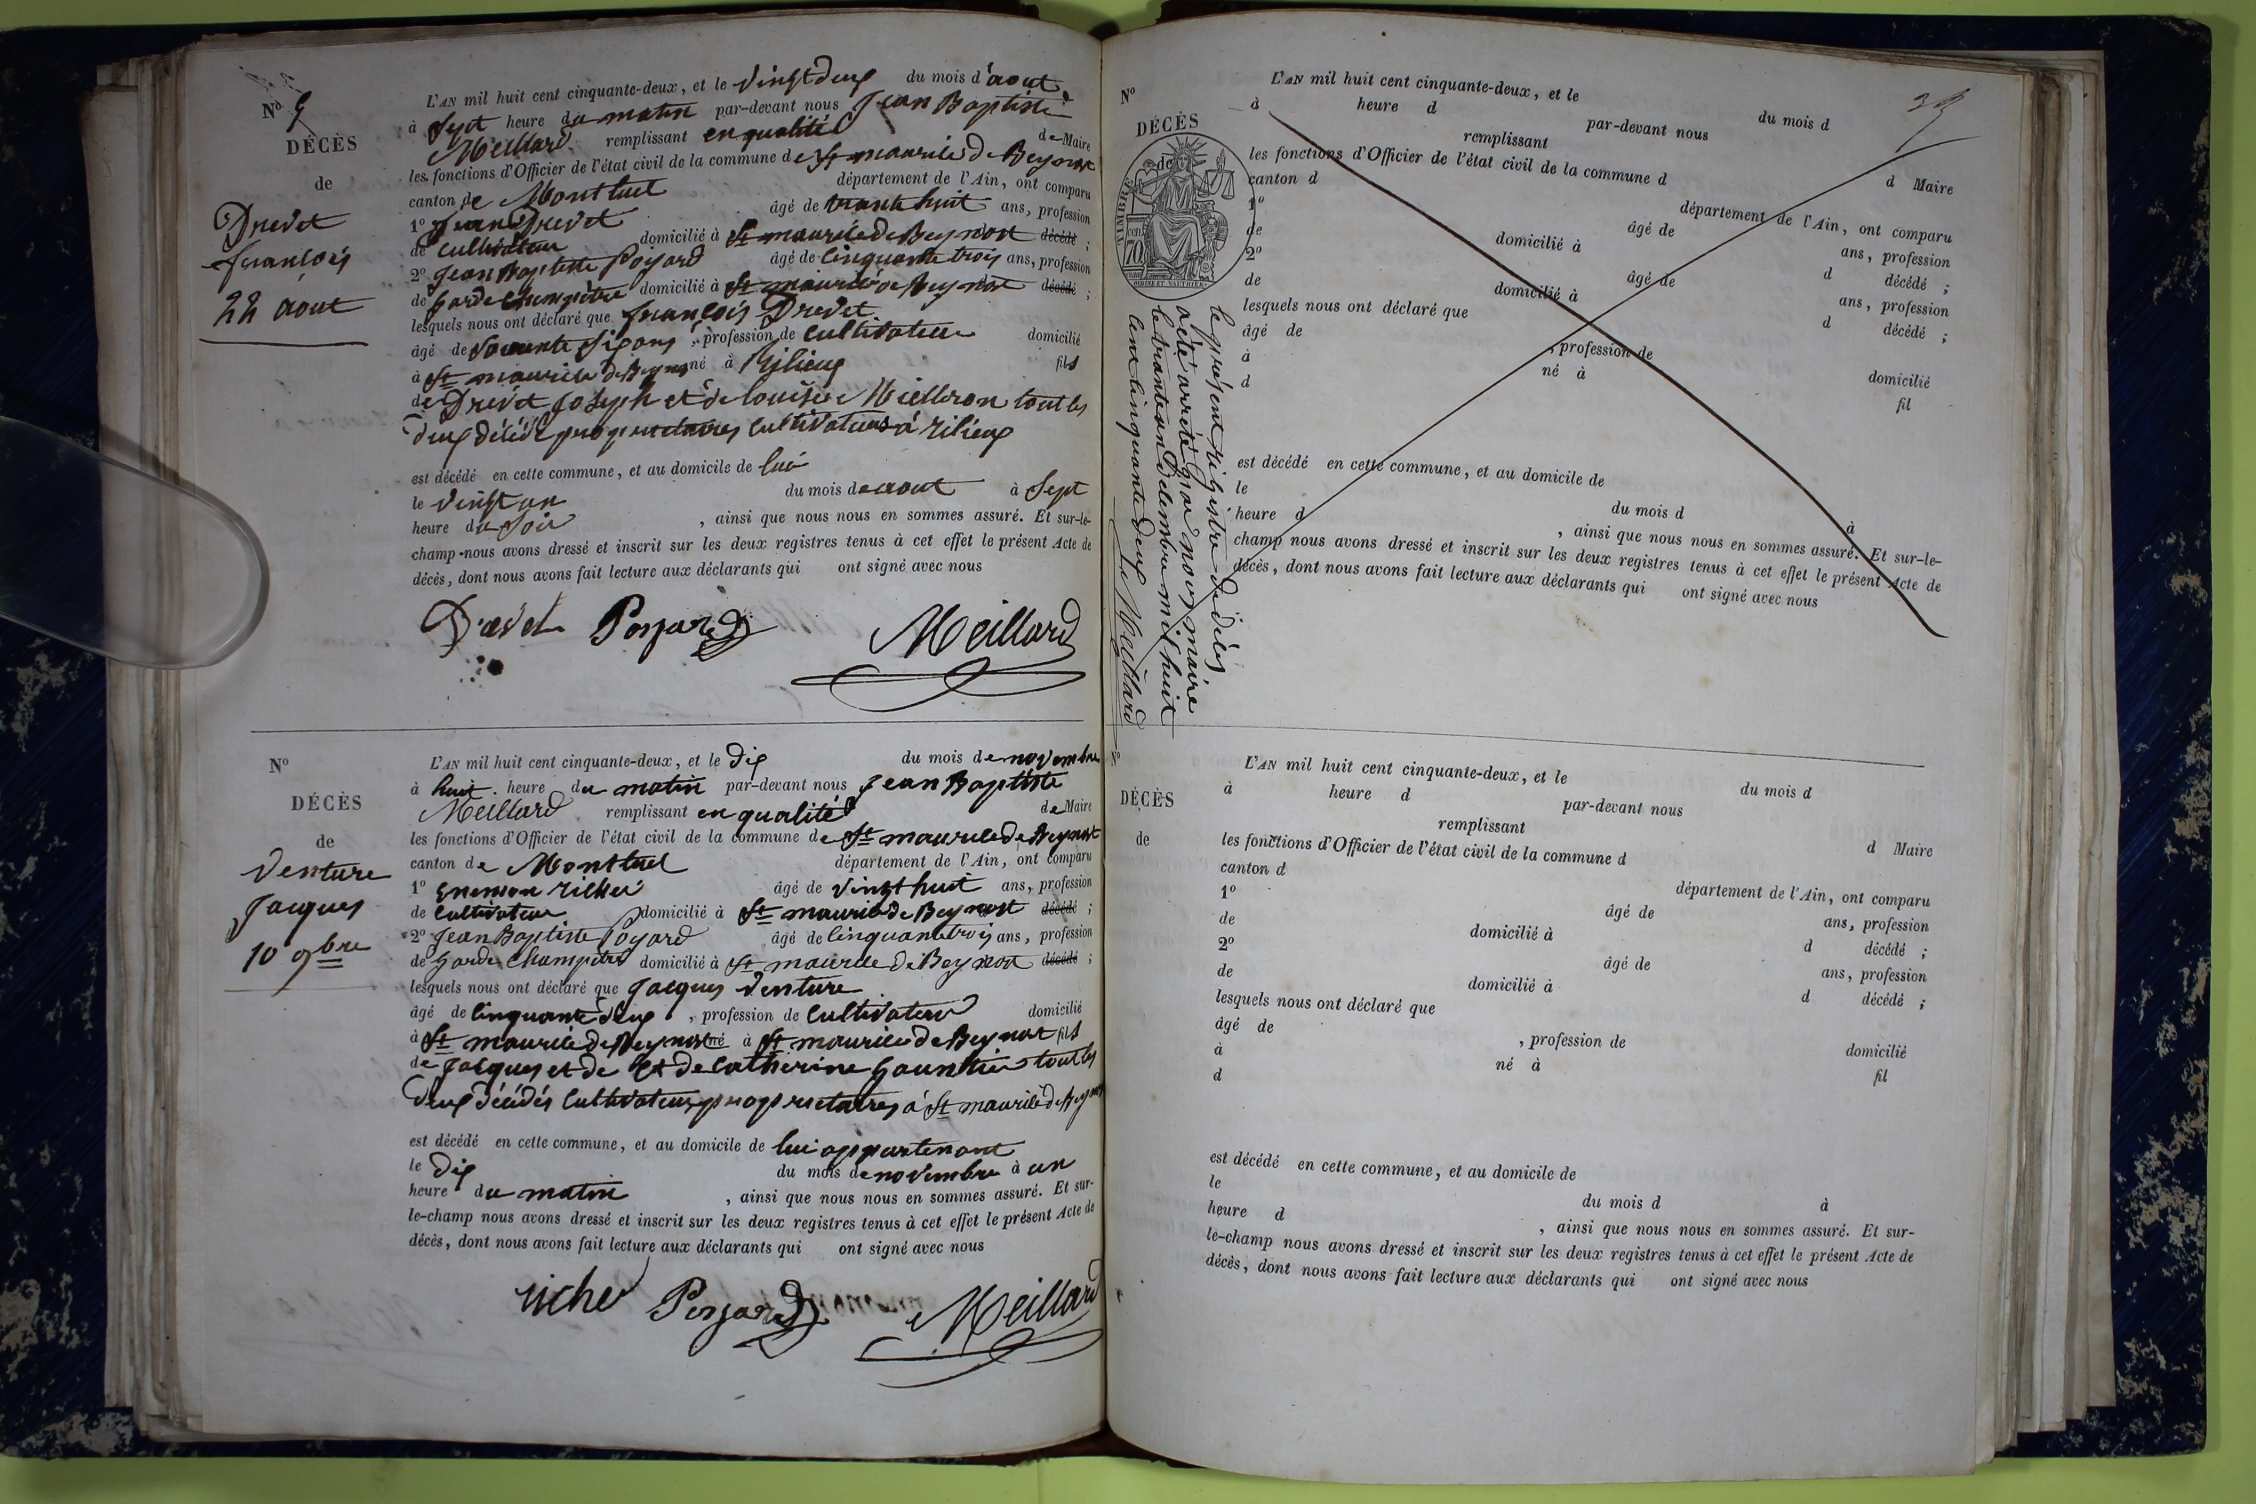 Nº 9
DÉCÈS
de
Drevet
françois
22 aout
L'AN mil huit cent cinquante-deux, et le vingt deux du mois d'aout
à Sept heure du matin par-devant nous Jean Baptiste
Meillard remplissant en qualité de Maire
les fonctions d'Officier de l'état civil de la commune de St maurice de Beynost
canton de Montluel département de l'Ain, ont comparu
1º Jean Drevet âgé de trante huit ans, profession
de cultivateur domicilié à St maurice de Beynost décédé ;
2º Jean Baptiste Poyard âgé de cinquante trois ans, profession
de garde Champêtre domicilié à St maurice de Beynost décédé ;
lesquels nous ont déclaré que françois Drevet
âgé de Soixante Six ans, profession de cultivateur domicilié
à St maurice de Beynost né à Rilieux fils
de Drevet Joseph et de louise tout les
deux décédé propriétaires cultivateurs à rilieux
est décédé en cette commune, et au domicile de lui
le vingt un du mois de aout à Sept
heure du soir , ainsi que nous nous en sommes assuré. Et sur-le-
champ nous avons dressé et inscrit sur les deux registres tenus à cet effet le présent Acte de
décès, dont nous avons fait lecture aux déclarants qui ont signé avec nous
Drevet Poyard Meillard
Nº
DÉCÈS
de
Venture
Jacques
10 9bre
L'AN mil huit cent cinquante-deux, et le dix du mois de novembre
à huit heure du matin par-devant nous Jean Baptiste
Meillard remplissant en qualité de Maire
les fonctions d'Officier de l'état civil de la commune de St maurice de Beynost
canton de Montluel département de l'Ain, ont comparu
1º richer âgé de vingt huit ans, profession
de cultivateur domicilié à St maurice de Beynost décédé ;
2º Jean Baptiste Poyard âgé de cinquante trois ans, profession
de garde Champetre domicilié à St maurice de Beynost décédé ;
lesquels nous ont déclaré que Jacques Venture
âgé de cinquante deux , profession de cultivateur domicilié
à St maurice de Beynost né à St maurice de Beynost fils
de Jacques et de Et de catherine tout les
deux décédés cultivateurs propriétaires à St maurice de Beynost
est décédé en cette commune, et au domicile de lui appartenant
le dix du mois de novembre à un
heure du matin , ainsi que nous nous en sommes assuré. Et sur-
le-champ nous avons dressé et inscrit sur les deux registres tenus à cet effet le présent Acte de
décès, dont nous avons fait lecture aux déclarants qui ont signé avec nous
richer Poyard Meillard
Nº
DÉCÈS
de
TIMBRE
70
le présent registre de décès
a été arrêté par nous maire
le trante un décembre mil huit
cent cinquante deux Meillard
L'AN mil huit cent cinquante-deux, et le du mois d
à heure d par-devant nous
remplissant d Maire
les fonctions d'Officier de l'état civil de la commune d
canton d département de l'Ain, ont comparu
1º âgé de ans, profession
de domicilié à d décédé ;
2º âgé de ans, profession
de domicilié à d décédé ;
lesquels nous ont déclaré que
âgé de , profession de domicilié
à né à fil
d
est décédé en cette commune, et au domicile de
le du mois d à
heure d , ainsi que nous nous en sommes assuré. Et sur-le-
champ nous avons dressé et inscrit sur les deux registres tenus à cet effet le présent Acte de
décès, dont nous avons fait lecture aux déclarants qui ont signé avec nous
Nº
DÉCÈS
de
L'AN mil huit cent cinquante-deux, et le du mois d
à heure d par-devant nous
remplissant d Maire
les fonctions d'Officier de l'état civil de la commune d
canton d département de l'Ain, ont comparu
1º âgé de ans, profession
de domicilié à d décédé ;
2º âgé de ans, profession
de domicilié à d décédé ;
lesquels nous ont déclaré que
âgé de , profession de domicilié
à né à fil
d
est décédé en cette commune, et au domicile de
le du mois d à
heure d , ainsi que nous nous en sommes assuré. Et sur-
le-champ nous avons dressé et inscrit sur les deux registres tenus à cet effet le présent Acte de
décès, dont nous avons fait lecture aux déclarants qui ont signé avec nous